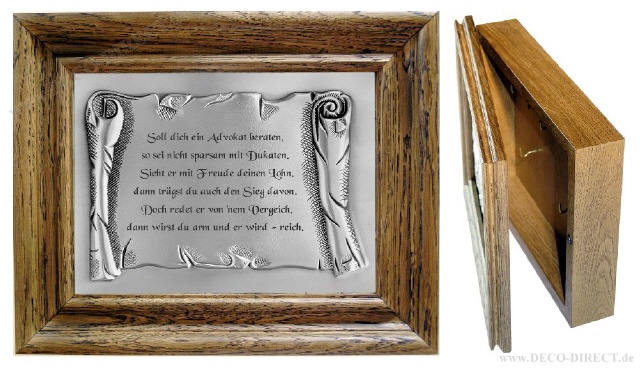 Soll dich ein Advokat beraten,
so sei nicht sparsam mit Dukaten.
Sieht er mit Freude deinen Lohn,
dann trägst du auch den Sieg davon.
Doch redet er von 'nem Vergeich,
dann wirst du arm und er wird - reich.
www.DECO-DIRECT.de